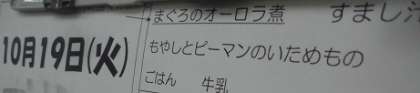 まぐろのオーロラ煮 すまし
10月19日(火)
もやしとピーマンのいためもの
ごはん 牛乳